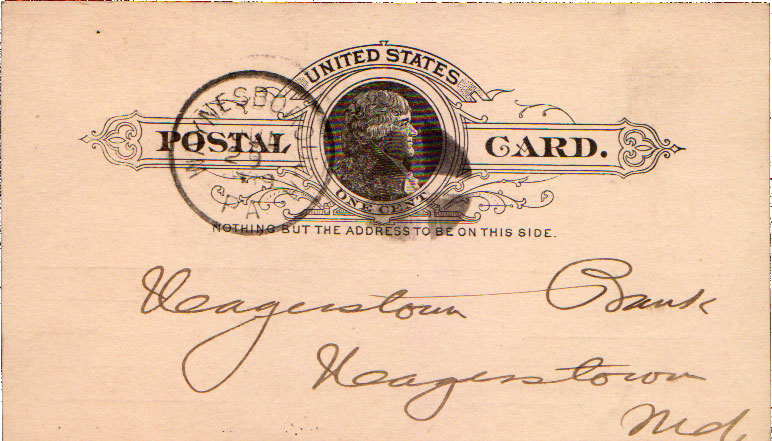 UNITED STATES
POSTAL CARD.
ONE CENT
NOTHING BUT THE ADDRESS TO BE ON THIS SIDE.
WAYNESBORO
29
PA
Hagerstown Bank
Hagerstown
Md.